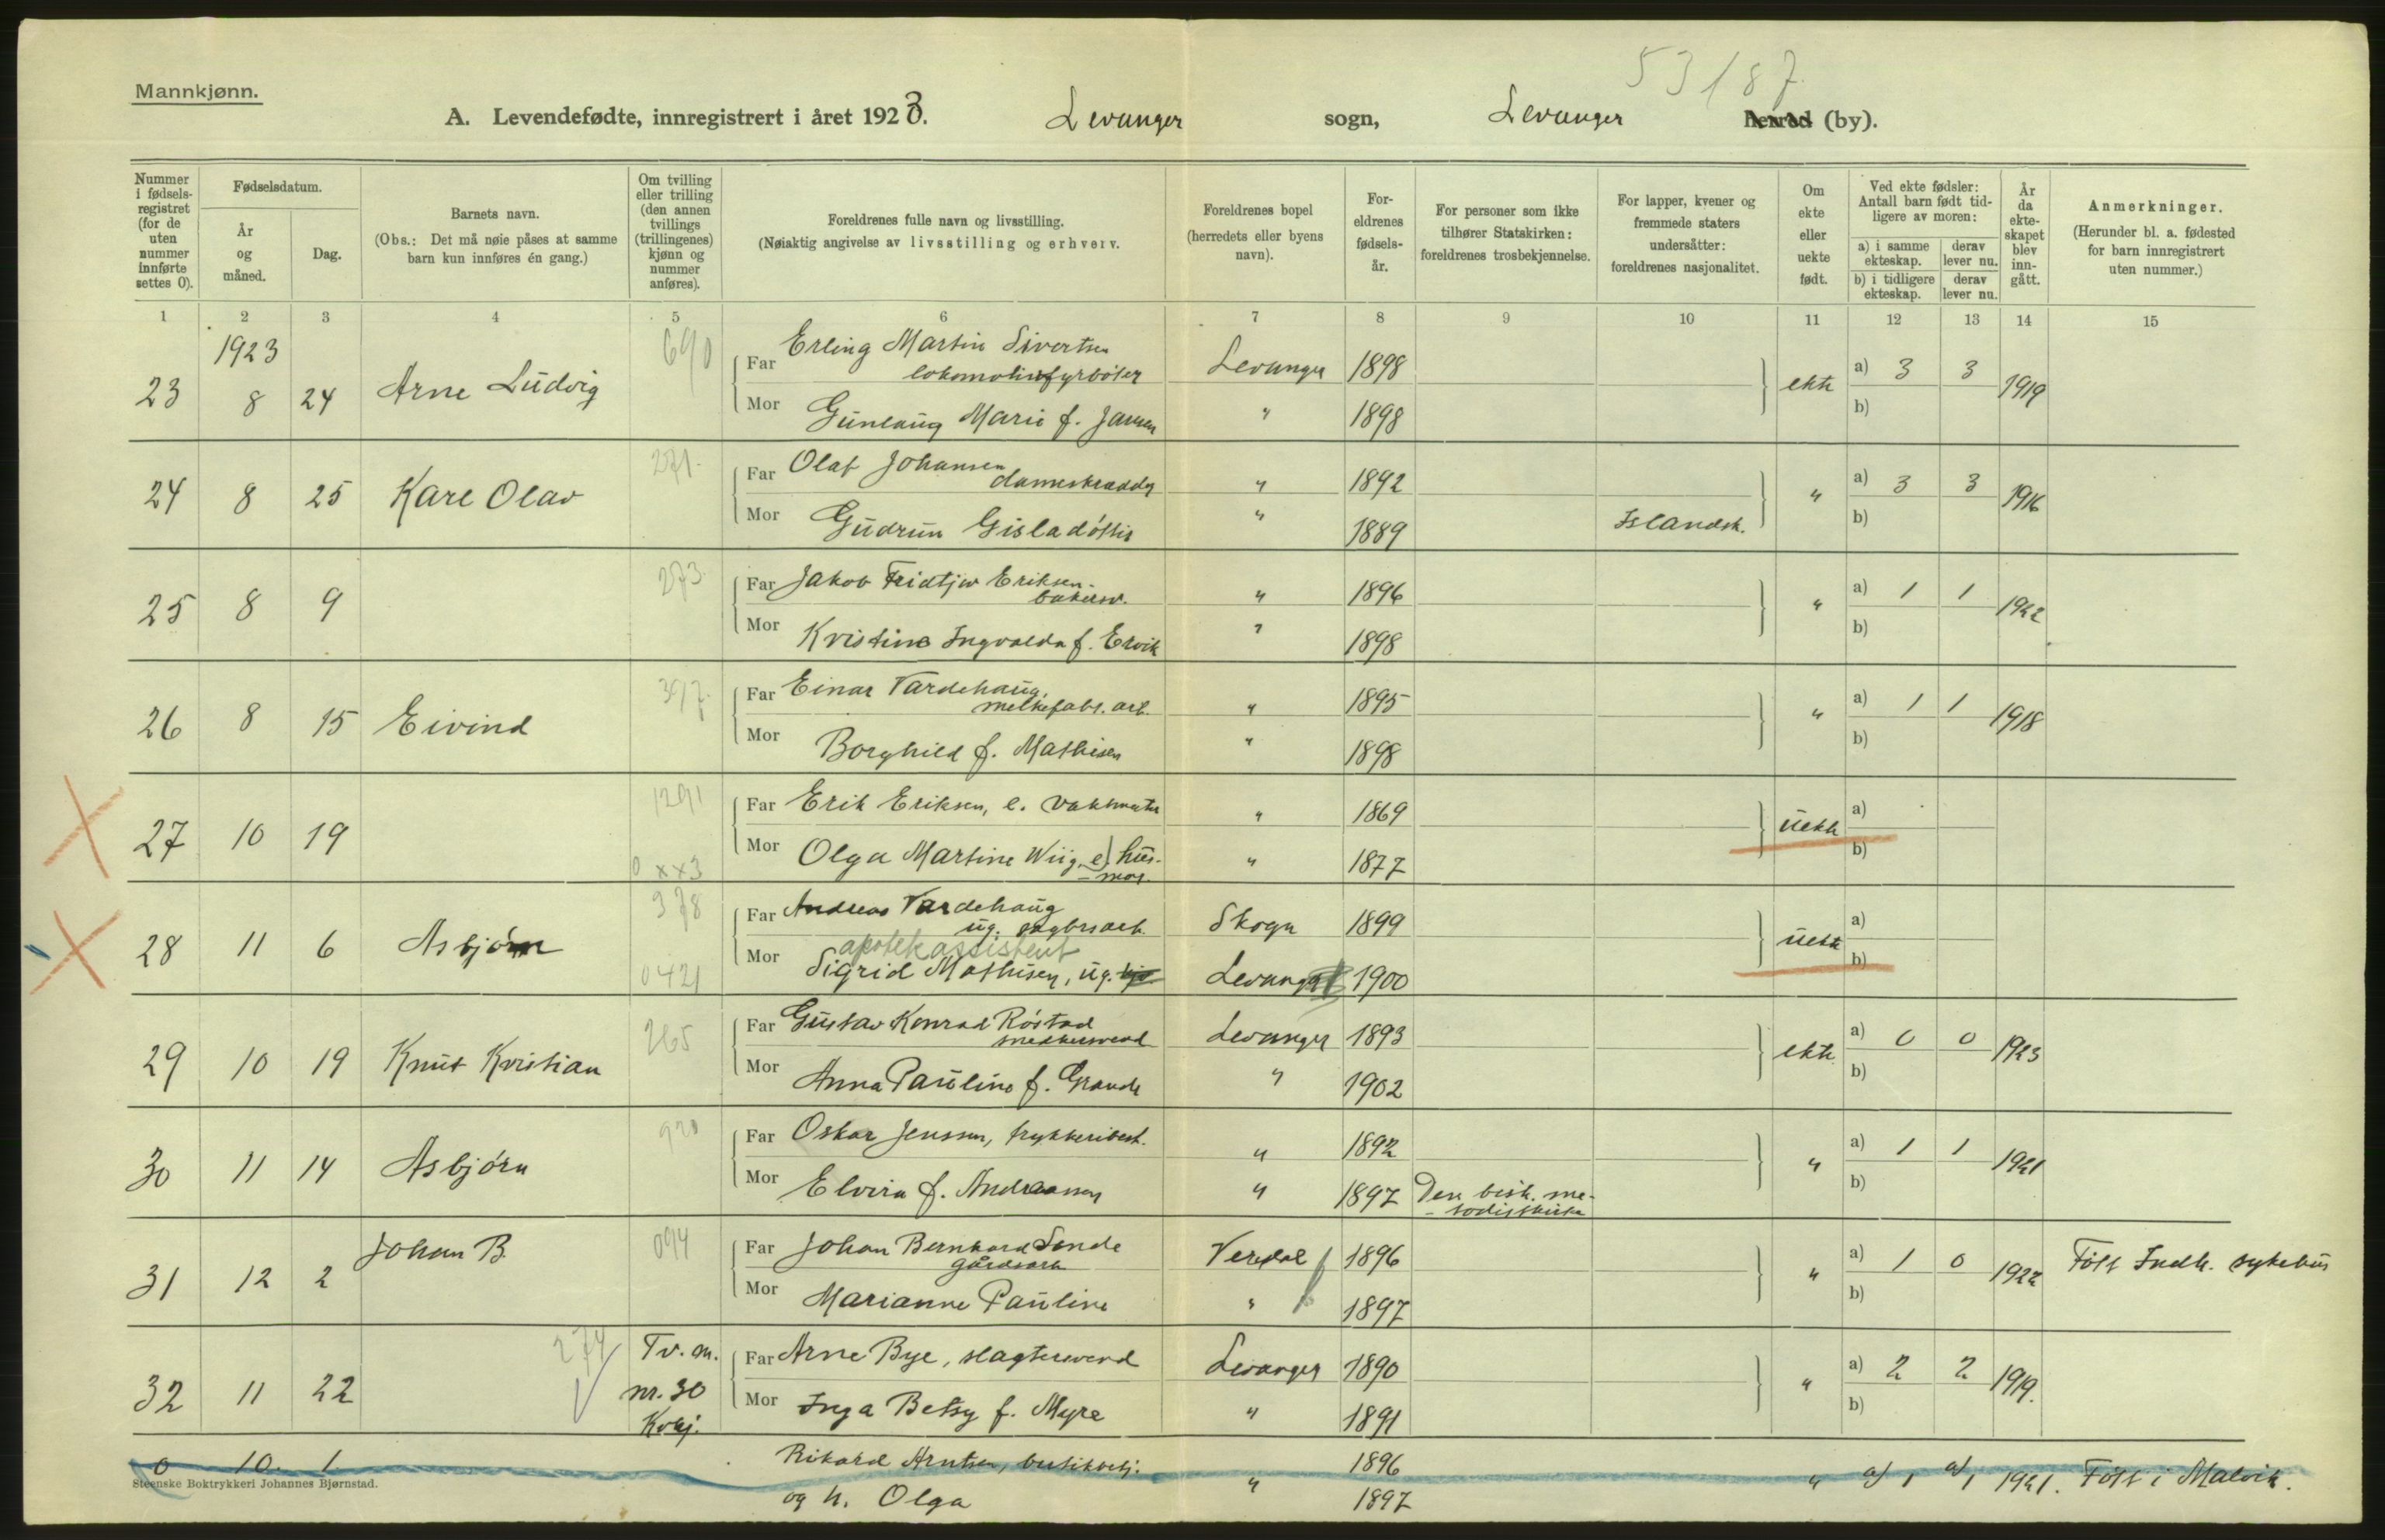 53187.
Mannkjønn.
A. Levendefødte, innregistrert i året 1923. Levanger sogn, Levanger herred (by).
Nummer i fødsels-registret (for de uten nummer innførte settes 0).
Fødselsdatum.
År og måned.
Dag.
Barnets navn.
(Obs.: Det må nøie påses at samme barn kun innføres én gang.)
Om tvilling eller trilling (den annen tvillings (trillingenes) kjønn og nummer anføres).
Foreldrenes fulle navn og livsstilling.
(Nøiaktig angivelse av livsstilling og erhverv.
Foreldrenes bopel (herredets eller byens navn).
For-eldrenes fødsels-år.
For personer som ikke tilhører Statskirken: foreldrenes trosbekjennelse.
For lapper, kvener og fremmede staters undersåtter: foreldrenes nasjonalitet.
Om ekte eller uekte født.
Ved ekte fødsler: Antall barn født tid-ligere av moren:
a) i samme ekteskap. derav lever nu.
b) i tidligere ekteskap. derav lever nu.
År da ekte-skapet blev inn-gått.
Anmerkninger.
(Herunder bl. a. fødested for barn innregistrert uten nummer.)
1 2 3 4 5 6 7 8 9 10 11 12 13 14 15
1923
690
23 8 24 Arne Ludvig
Far Erling Martin Sivertsen lokomotivfyrbøter Levanger 1898 ekte a) 3 3 1919
Mor Gunlaug Marie f. Jansen " 1898 b)
271.
24 8 25 Kare Olav
Far Olaf Johansen dameskrædder " 1892 " a) 3 3 1916
Mor Gudrun Gisladóttir " 1889 Islandsk. b)
273.
25 8 9
Far Jakob Fridtjov Eriksen bakersv. " 1896 " a) 1 1 1922
Mor Kristine Ingvalda f. Ervik " 1898 b)
26 8 15 Eivind
Far Einar Vardehaug, melkefabr. arb. " 1895 " a) 1 1 1918
Mor Borghild f. Mathisen " 1898 b)
1291
27 10 19
Far Erik Eriksen, e. vaktmester " 1869 uekte a)
Mor Olga Martine Wiig, e. hus-mor. " 1877 b)
0 xx3
378
28 11 6 Asbjørn
Far Andreas Vardehaug ug. sagbrsarb. Skogn 1899 uekte a)
apotekassistent
Mor Sigrid Mathisen, ug. Levanger 1900 b)
0421
265
29 10 19 Knut Kristian
Far Gustav Konrad Røstad snedkersvend Levanger 1893 ekte a) 0 0 1923
Mor Anna Pauline f. Grande " 1902 b)
920
30 11 14 Asbjørn
Far Oskar Jenssen, trykkeribest. " 1892 " a) 1 1 1921
Mor Elvira f. Andreassen " 1897 Den bisk. me-todistkirke b)
094
31 12 2 Johan B.
Far Johan Bernhard Sende gårdsarb. Verdal 1896 " a) 1 0 1922 Født Indh. sykehus
Mor Marianne Pauline " 1897 b)
274
32 11 22 Tv. m. nr. 30 Kvkj.
Far Arne Bye, slagtersvend Levanger 1890 " a) 2 2 1919.
Mor Inga Betsy f. Myre " 1891 b)
0 10. 1 Rikard Arntsen, butikbetj. 1896
og h. Olga " 1897 " a) 1 a) 1 1921. Født i Malvik.
Steenske Boktrykkeri Johannes Bjørnstad.